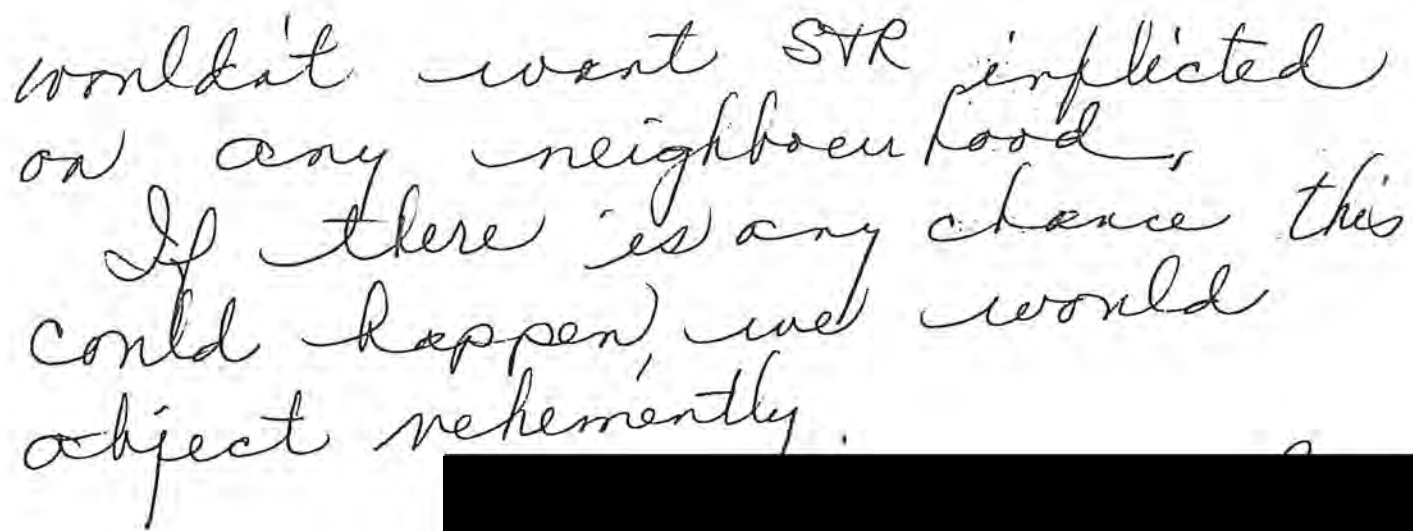 wouldn't want STR inflicted
on any neighbourhood.
If there is any chance this
could happen, we would
object vehemently.